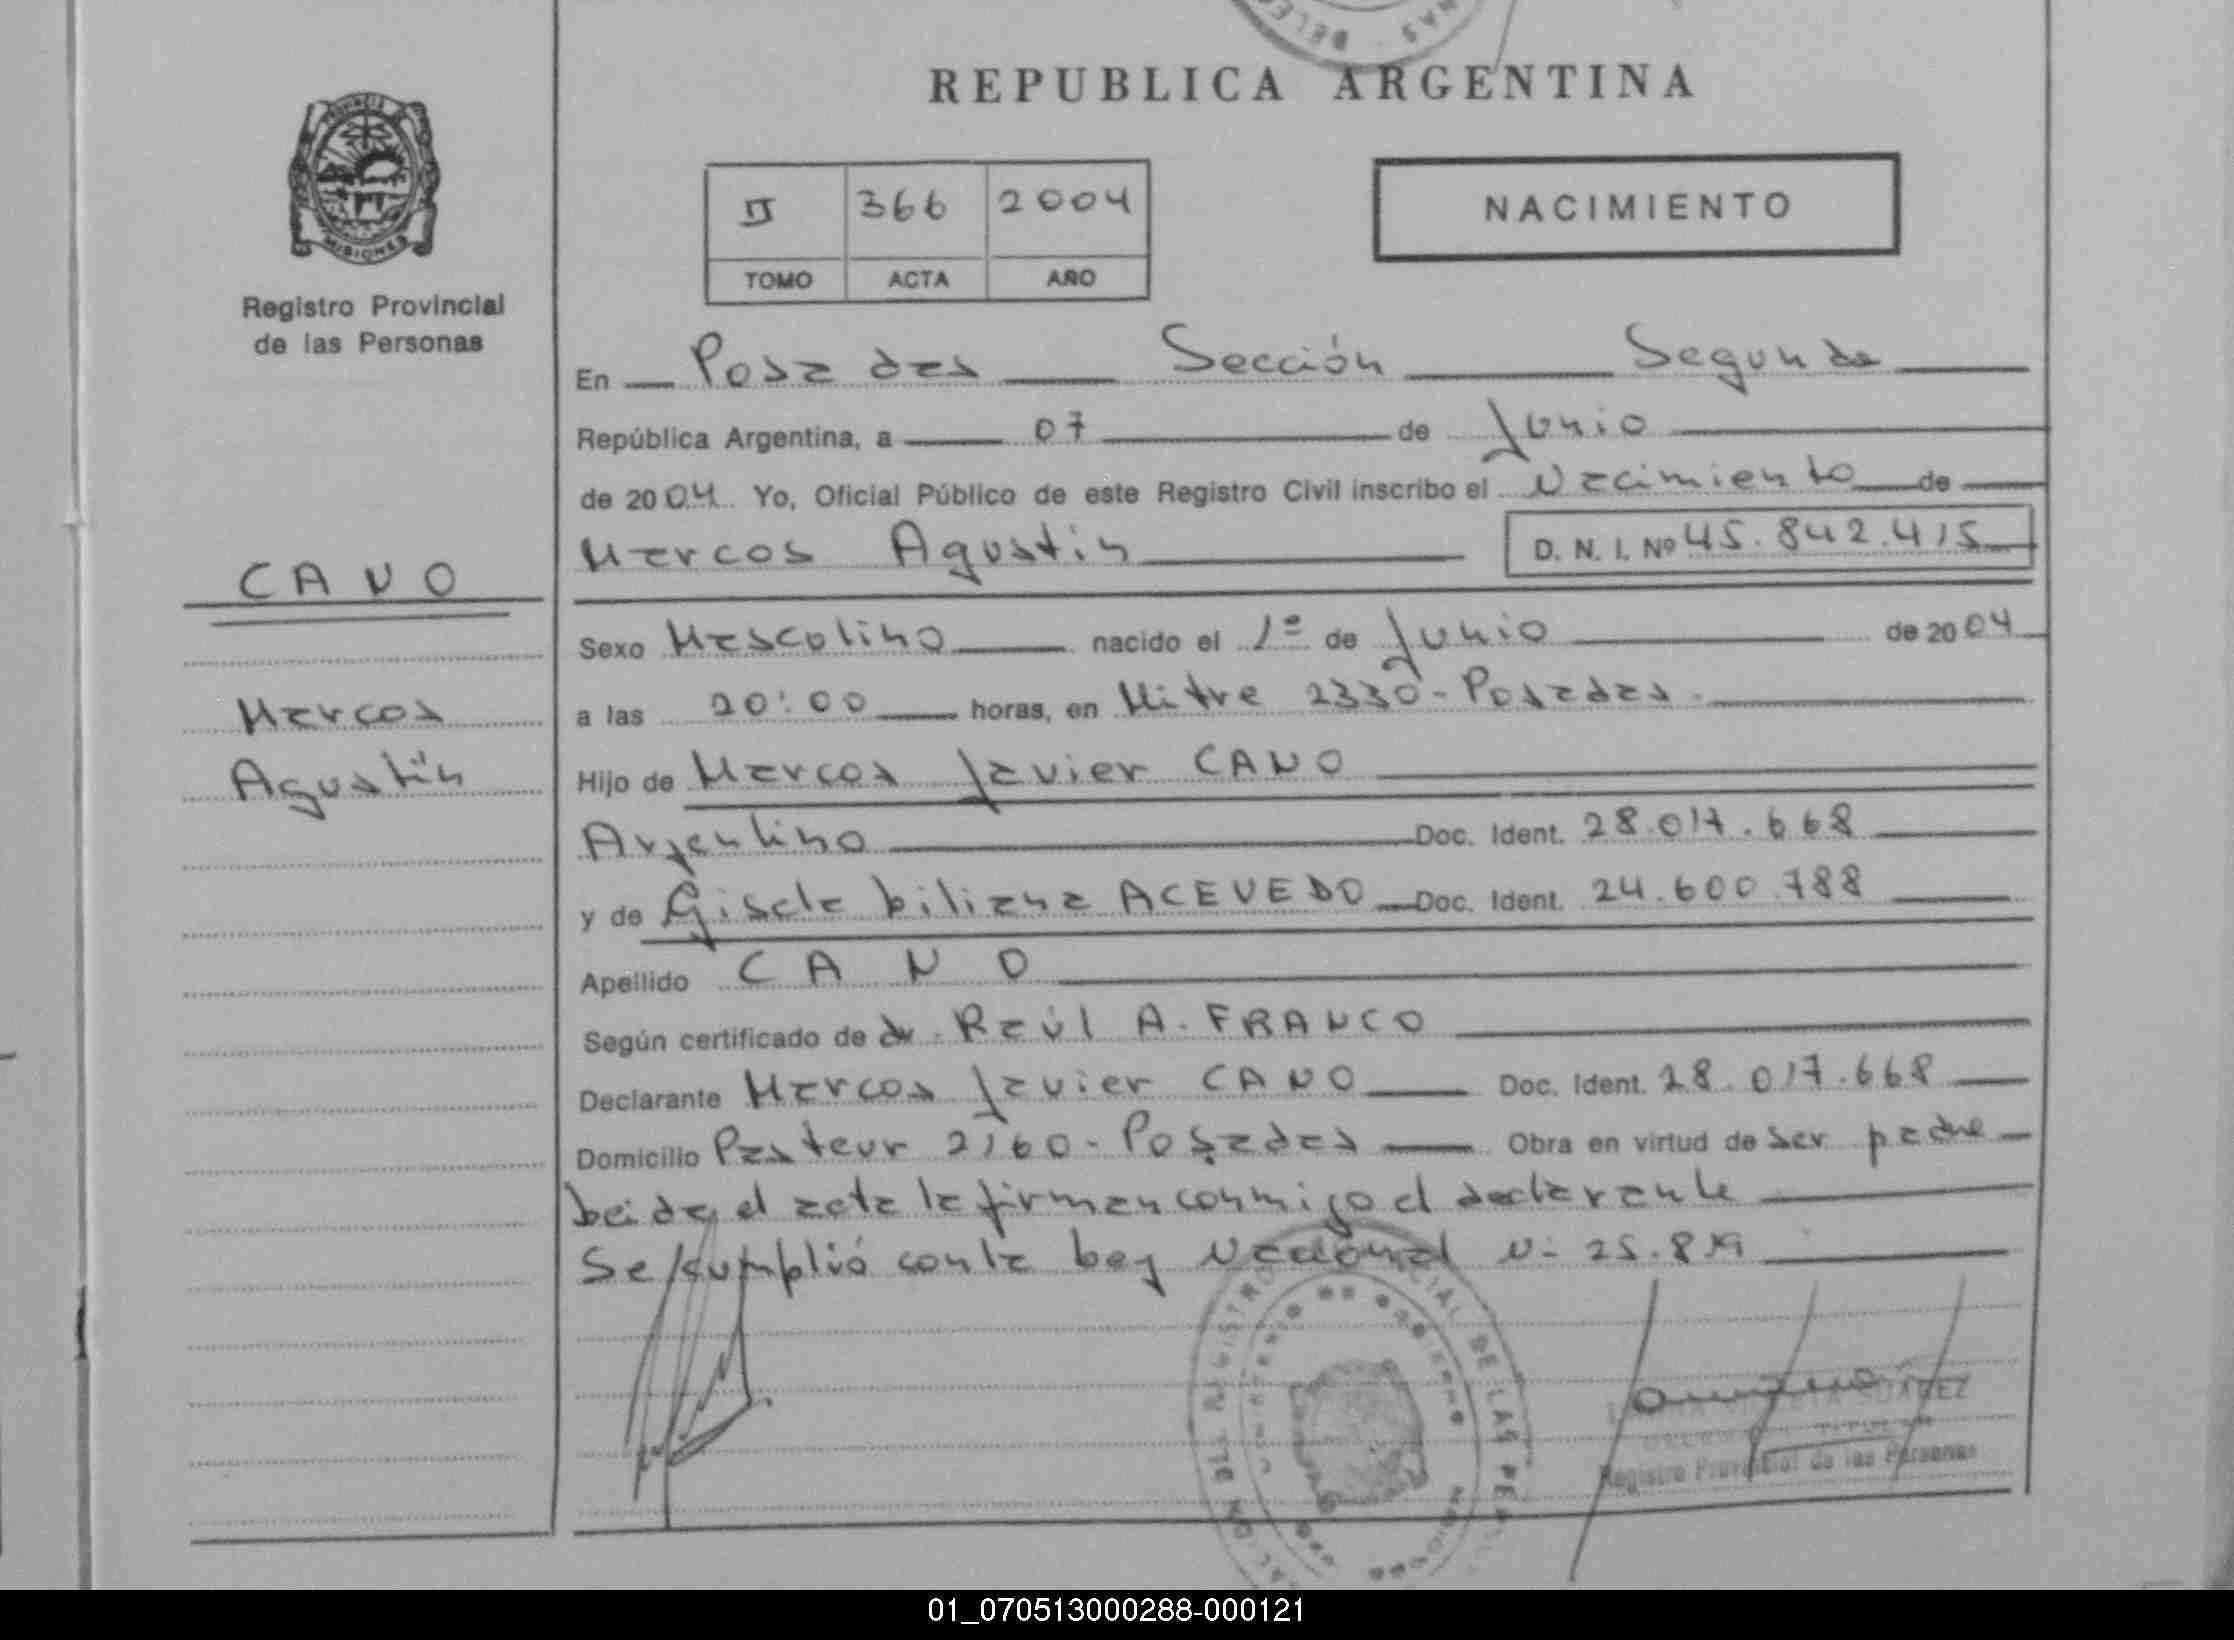 REPUBLICA ARGENTINA
PROVINCIA
MISIONES
Registro Provincial
de las Personas
II 366 2004
TOMO ACTA AÑO
NACIMIENTO
En Posadas Sección Segunda
República Argentina, a 07 de Junio
de 2004 Yo, Oficial Público de este Registro Civil inscribo el Nacimiento de
Marcos Agustín D. N. I. Nº 45.842.415
CANO
Marcos
Agustín
Sexo Masculino nacido el 1º de Junio de 2004
a las 20:00 horas, en Mitre 2330 - Posadas.
Hijo de Marcos Javier CANO
Argentino Doc. Ident. 28.017.668
y de Gisela Liliana ACEVEDO Doc. Ident. 24.600.788
Apellido CANO
Según certificado de dr. Raúl A. FRANCO
Declarante Marcos Javier CANO Doc. Ident. 28.017.668
Domicilio Pasteur 2160 - Posadas Obra en virtud de ser padre
Leida el acta la firman conmigo el declarante
Se cumplió con la Ley Nacional N- 25.819
REGISTRO PROVINCIAL DE LAS PERSONAS
Registro Provincial de las Personas
01_070513000288-000121